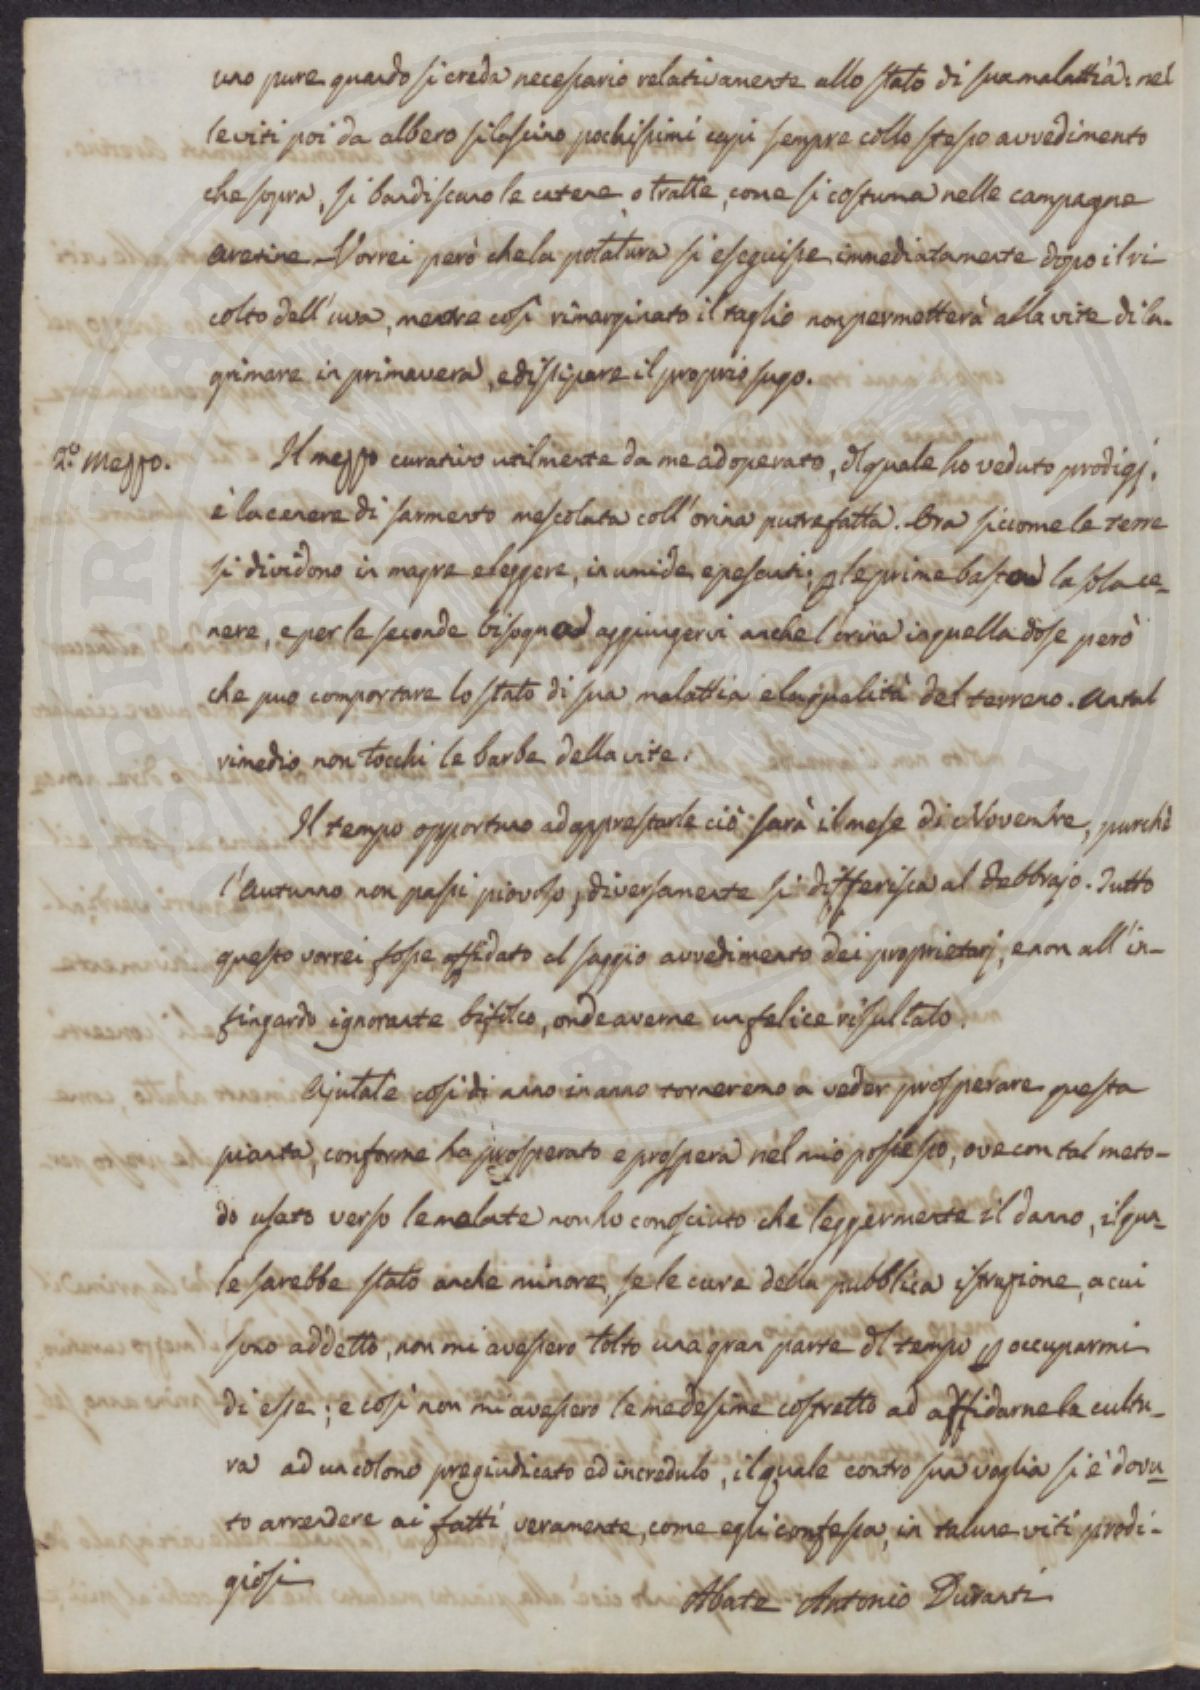 uno pure quando si creda necessario relativamente allo stato di sua malattia: nel
le viti poi da albero si lascino pochissimi capi sempre collo stesso avvedimento
che sopra, si bandiscano le catene o tratte, come si costuma nelle campagne
aretine. Vorrei però che la potatura si eseguisse immediatamente dopo il ri
colto dell'uva, mentre così rimarginato il taglio non permetterà alla vite di la-
grimare in primavera, e dissipare il proprio sugo.
2.° Mezzo. Il mezzo curativo utilmente da me adoperato, dl quale ho veduto prodigj,
è la cenere di sarmento mescolata coll'orina putrefatta. Ora siccome le terre
si dividono in magre e leggere, in umide e pesanti; p le prime basterà la sola ce-
nere, e per le seconde bisognerà aggiungervi anche l'orina in quella dose però
che può comportare lo stato di sua malattia e la qualità del terreno. Un tal
rimedio non tocchi le barbe della vite.
Il tempo opportuno ad apprestarle ciò sarà il mese di Novembre, purchè
l'Autunno non passi piovoso, diversamente si differisca al Febbrajo. Tutto
questo vorrei fosse affidato al saggio avvedimento dei proprietarj, e non all'in-
fingardo ignorante bifolco, onde averne un felice risultato.
Ajutate così di anno in anno torneremo a veder prosperare questa
pianta, conforme ha prosperato e prospera nel mio possesso, ove con tal meto-
do usato verso le malate non ho conosciuto che leggermente il danno, il qua-
le sarebbe stato anche minore, se le cure della pubblica istruzione, a cui
sono addetto, non mi avessero tolto una gran parte dl tempo p occuparmi
di esse; e così non mi avessero le medesime costretto ad affidarne la cultu-
ra ad un colono pregiudicato ed incredulo, il quale contro sua voglia si è dovu-
to arrendere ai fatti veramente, come egli confessa, in talune viti prodi-
giosi
Abate Antonio Duranti